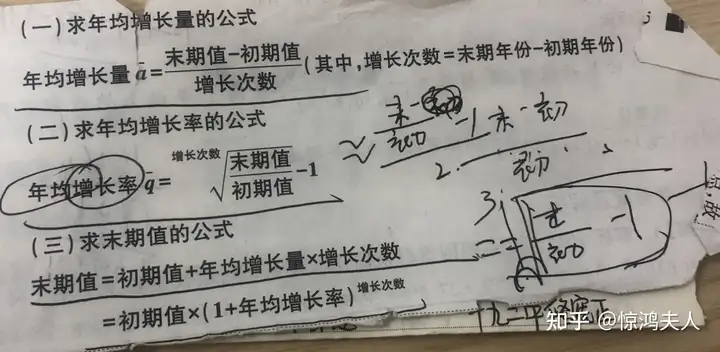 (一)求年均增长量的公式
年均增长量 ā=末期值-初期值/增长次数(其中,增长次数=末期年份-初期年份)
(二)求年均增长率的公式
年均增长率 q̄=增长次数√末期值/初期值-1
(三)求末期值的公式
末期值=初期值+年均增长量×增长次数
=初期值×(1+年均增长率)增长次数
末-
初
-1
末-初
初
2.
3.
末
初
-1
知乎 @惊鸿夫人